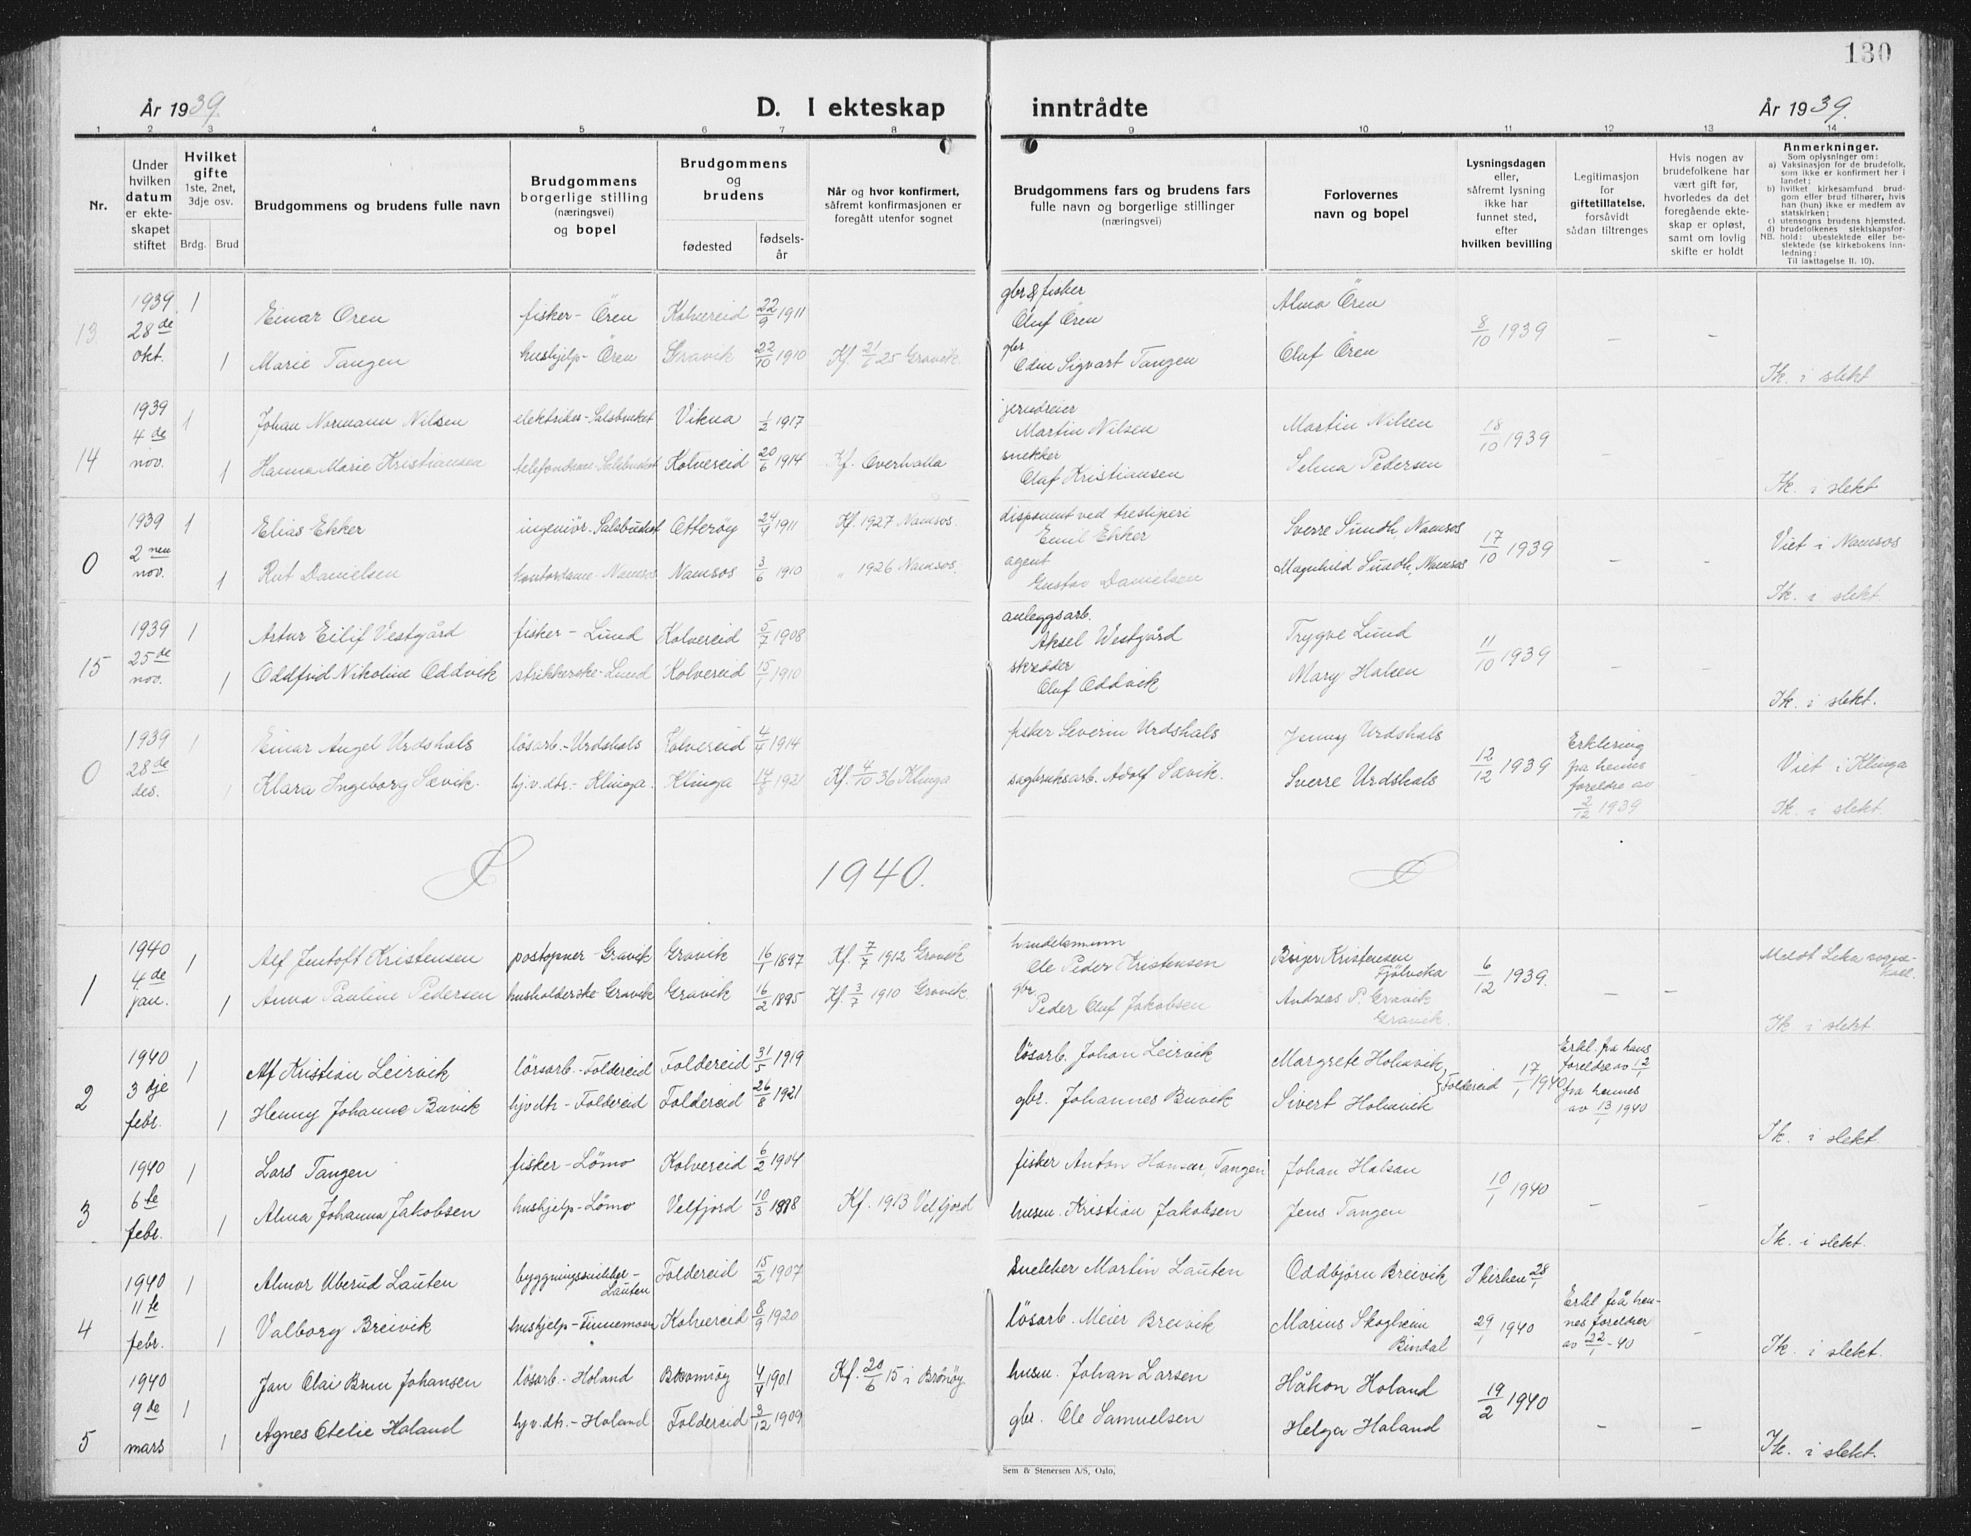 130
År 1939.
D. I ekteskap inntrådte
År 1939.
1 2 3 4 5 6 7 8 9 10 11 12 13 14
Nr.
Under
hvilken
datum
er ekte-
skapet
stiftet
Hvilket
gifte
1ste, 2net,
3dje osv.
Brdg. Brud
Brudgommens og brudens fulle navn
Brudgommens
borgerlige stilling
(næringsvei)
og bopel
Brudgommens
og
brudens
fødested
fødsels-
år
Når og hvor konfirmert,
såfremt konfirmasjonen er
foregått utenfor sognet
Brudgommens fars og brudens fars
fulle navn og borgerlige stillinger
(næringsvei)
Forlovernes
navn og bopel
Lysningsdagen
eller,
såfremt lysning
ikke har
funnet sted,
efter
hvilken bevilling
Legitimasjon
for
giftetillatelse,
forsåvidt
sådan tiltrenges
Hvis nogen av
brudefolkene har
vært gift før,
hvorledes da det
foregående ekte-
skap er opløst,
samt om lovlig
skifte er holdt
Anmerkninger.
Som oplysninger om:
a) Vaksinasjon for de brudefolk,
som ikke er konfirmert her i
landet;
b) hvilket kirkesamfund brud-
gom eller brud tilhører, hvis
han (hun) ikke er medlem av
statskirken;
c) utensogns brudens hjemsted.
d) brudefolkenes slektskapsfor-
hold: ubeslektede eller be-
NB. slektede (se kirkebokens inn-
ledning:
Til iakttagelse II. 10).
13. 1939 28de okt. 1 Einar Ören fisker - Ören Kolvereid 22/9 1911 gbr & fisker Oluf Ören Alma Ören 8/10 1939 - -
1 Marie Tangen hushjelp - Ören Gravik 22/10 1910 Kf. 21/6 25 Gravik. gbr Sigvart Tangen Oluf Ören Ik. i slekt
14 1939 4de nov. 1 Johan Normann Nilsen elektriker - Salsbruket Vikna 1/2 1917 Martin Nilsen Martin Nilsen 18/10 1939 -
1 Hanna Marie Kristiansen Salsbruket Kolvereid 20/6 1914 Kf. Overhalla snekker Oluf Kristiansen Selma Pedersen Ik. i slekt
0 1939 2nen nov. 1 Elias Ekker ingeniör - Salsbruket Otteröy 24/4 1911 Kf. 1927 Namsos. disponent ved Emil Ekker Sverre Sundh, Namsos 17/10 1939 - - Viet i Namsos
1 Rut Danielsen kontordame - Namsos Namsos 3/6 1910 " 1926 Namsos. agent Gustav Danielsen Magnhild Sundh, Namsos Ik. i slekt.
15 1939 25de nov. 1 Artur Eilif Vestgård fisker - Lund Kolvereid 5/7 1908 anleggsarb. Aksel Westgård Trygve Lund 11/10 1939 - -
1 Oddfrid Nikoline Oddvik strikkerske - Lund Kolvereid 15/1 1910 skredder Oluf Oddvik Mary Halsen Ik. i slekt.
0 1939 28de des. 1 Einar Angel Urdshals lösarb. - Urdshals Kolvereid 4/4 1914 fisker Severin Urdshals Jenny Urdshals 12/12 1939 Erklering fra hennes foreldre av 2/12 1939 - Viet i Klinga
1 Klara Ingeborg Sævik. hj.v.dtr. - Klinga. Klinga 14/8 1921 Kf. 4/10 36 Klinga sagbruksarb. Adolf Sævik. Sverre Urdshals Ik. i slekt.
1940.
1 1940 4de jan. 1 Alf Jentoft Kristensen postopner - Gravik Gravik 16/1 1897 Kf. 7/7 1912 Gravik handelsmann Ole Peder Kristensen Birger Kristensen Fjölvika 6/12 1939. - - Meldt Leka
1 Anna Pauline Pedersen husholderske Gravik Gravik 16/2 1895 Kf. 3/7 1910 Gravik. gbr. Peder Oluf Jakobsen Andreas P. Gravik Gravik. Ik. i slekt.
2 1940 3dje febr. 1 Alf Kristian Leirvik lösarb. - Foldereid Foldereid 31/5 1919 lösarb. Johan Leirvik Margrete Holmvik } Foldereid 17/1 1940 Erkl. fra hans foreldre av 12/1 fra hennes av 13/1 1940
1 Henny Johanne Buvik hjv.dtr - Foldereid Foldereid 26/8 1921 gbr. Johannes Buvik Sivert Holmvik Ik. i slekt.
3 1940 6te febr. 1 Lars Tangen fisker - Lömo Kolvereid 6/2 1904 fisker Anton Tangen Johan Halsan 10/1 1940 - -
1 Alma Johanna Jakobsen hushjelp - Lömo Velfjord 10/3 1898 Kf. 1913 Velfjord husm. Kristian Jakobsen Jens Tangen Ik. i slekt.
4 1940 11te febr. 1 Almar Uberud Lauten Lauten Foldereid 15/2 1907 Snekker Martin Lauten Oddbjörn Breivik I kirken 28/1 Erkl. frå hennes foreldrer av 22/1 - 40
1 Valborg Breivik hushjelp - Finnemoen Kolvereid 8/9 1920 lösarb. Meier Breivik Marius Skogheim Bindal 29/1 1940 - Ik. i slekt.
5 1940 9de mars 1 Jan Olai Brun Johansen lösarb. - Holand Brönnöy 4/4 1901 Kf. 20/6 15 i Brönöy. husm. Johan Larsen Håkon Holand 19/2 1940 - -
1 Agnes Otelie Holand hj.v.dtr. - Holand Foldereid 3/12 1909 gbr. Ole Samuelsen Helga Holand Ik. i slekt.
Sem & Stenersen A/S, Oslo,